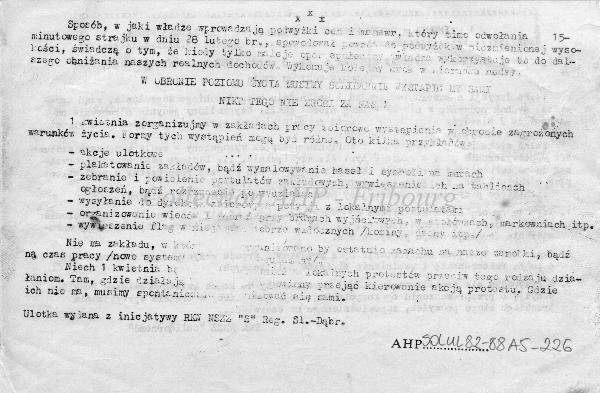 x x x
Sposób, w jaki władze wprowadzają podwyżki cen i manewr, który mimo odwołania 15-
minutowego strajku w dniu 28 lutego br., spowodował podwyżek w niezmienionej wyso-
kości, świadczą o tym, że kiedy tylko maleje opór władza wykorzystuje to do dal-
szego obniżania naszych realnych dochodów. Wykonuje kolejny krok w kierunku nędzy.
W OBRONIE POZIOMU ŻYCIA MUSIMY SOLIDARNIE WYSTĄPIĆ MY SAMI
NIKT TEGO NIE ZROBI ZA NAS !
1 kwietnia zorganizujmy w zakładach pracy zbiorowe wystąpienia w obronie zagrożonych
warunków życia. Formy tych wystąpień mogą być różne. Oto kilka przykładów
- akcje ulotkowe
- plakatowanie zakładów, bądź wymalowywanie haseł i symboli na murach
- zebranie i powielenie postulatów zakładowych, wywieszenie ich na tablicach
ogłoszeń, bądź
- wysyłanie do z lokalnymi postulatami
- organizowanie wieców przy bramach wyjściowych, w stołówkach, markowniach itp.
- wywieszenie flag w miejscach dobrze widocznych /kominy, itp./
Nie ma zakładu, w któr by ostatnio zamachu na nasze zarobki, bądź
na czas pracy /nowe systemy
Niech 1 kwietnia lokalnych protestów przeciw tego rodzaju dzia-
łaniom. Tam, gdzie działają powinny przejąć kierowanie akcją protestu. Gdzie
ich nie ma, musimy spontanicznie się sami.
Ulotka wydana z inicjatywy RKW NSZZ "S" Reg. Śl.-Dąbr.
AHP SOL UL 82-88 A5-226